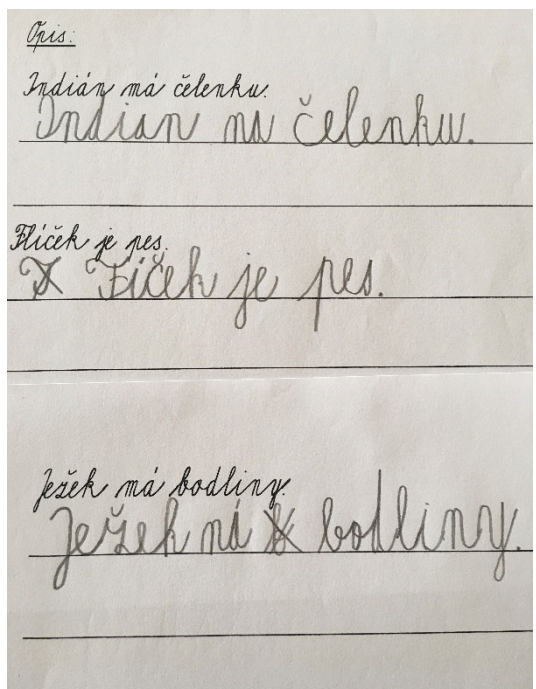 Opis:
Indián má čelenku.
Indian na čelenku.
Flíček je pes.
Fíček je pes.
Ježek má bodliny.
Ježek ná bodliny.